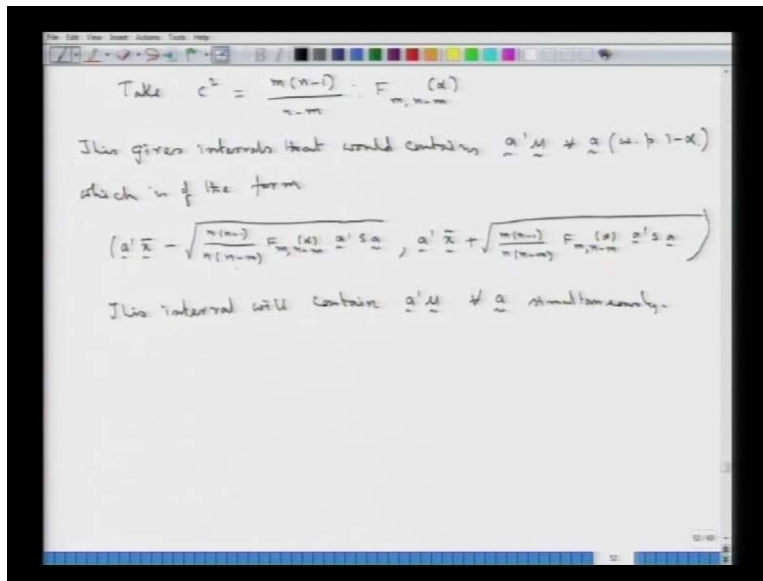 File Edit View Insert Actions Tools Help
Take c² = m(n-1)/(n-m) · F_{m, n-m}^{(α)}
This gives intervals that would contains a'μ ∀ a (w.p. 1-α)
which is of the form
(a'x̄ - √(m(n-1)/(n(n-m)) F_{m,n-m}^{(α)} a'Sa), a'x̄ + √(m(n-1)/(n(n-m)) F_{m,n-m}^{(α)} a'Sa))
This interval will contain a'μ ∀ a simultaneously.